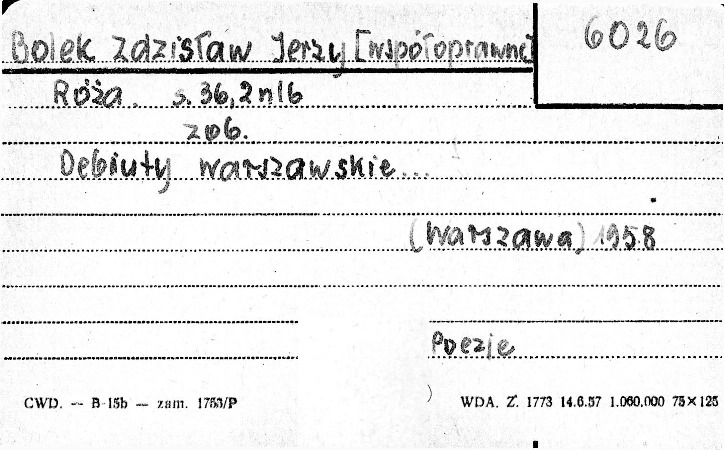 Bolek Zdzisław Jerzy [współoprawne]
6026
Róża. s. 36, 2 nlb
zob.
Debiuty warszawskie...
(Warszawa) 1958
Poezje
CWD. — B-15b — zam. 1753/P
WDA. Z. 1773 14.6.57 1.060.000 75×125